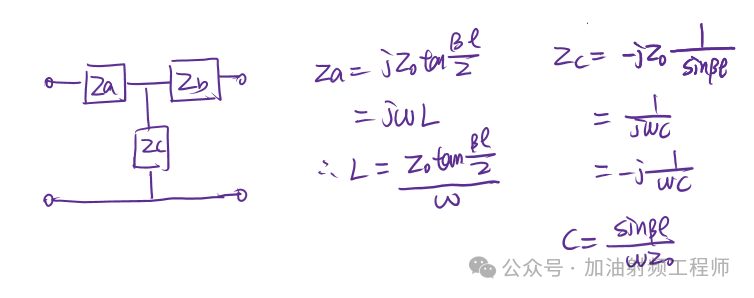 Za
Zb
Zc
Za = jZ₀ tan βℓ/2
= jωL
∴ L = Z₀ tan βℓ/2 / ω
Zc = -jZ₀ 1/sinβℓ
= 1/jωC
= -j 1/ωC
C = sinβℓ/ωZ₀
公众号 · 加油射频工程师